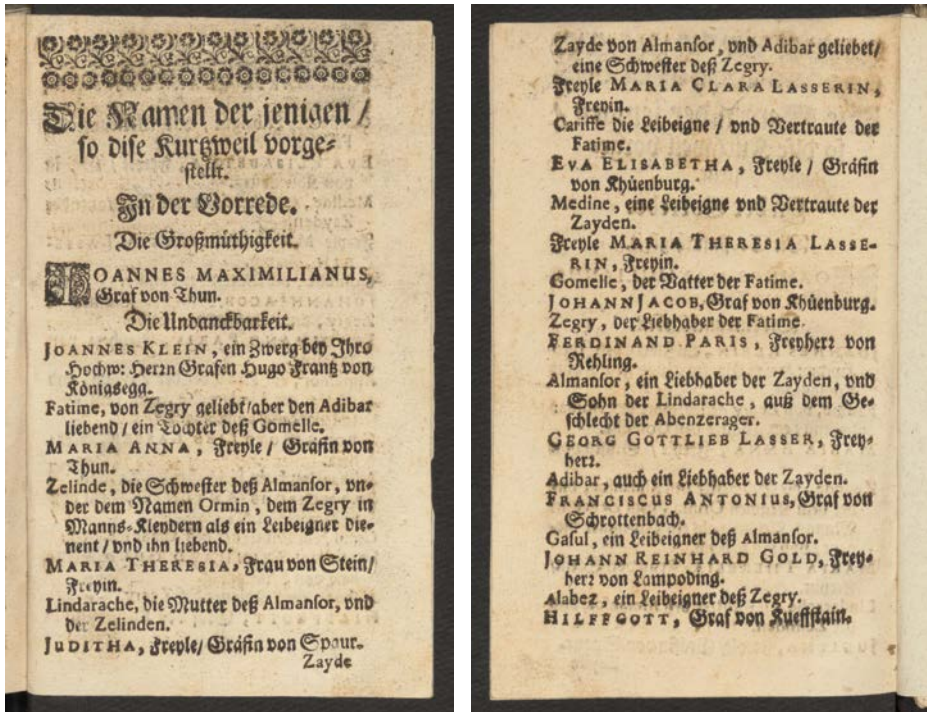 Die Namen der jenigen /
so dise Kurtzweil vorge-
stellt.
In der Vorrede.
Die Großmüthigkeit.
JOANNES MAXIMILIANUS,
Graf von Thun.
Die Undanckbarkeit.
JOANNES KLEIN, ein Zwerg bey Ihro
Hochw: Herrn Grafen Hugo Frantz von
Königsegg.
Fatime, von Zegry geliebt / aber den Adibar
liebend / ein Tochter deß Gomelle.
MARIA ANNA, Freyle / Gräfin von
Thun.
Zelinde, die Schwester deß Almansor, vn-
der dem Namen Ormin, dem Zegry in
Manns-Kleydern als ein Leibeigner die-
nent / vnd ihn liebend.
MARIA THERESIA, Frau von Stein/
Freyin.
Lindarache, die Mutter deß Almansor, vnd
der Zelinden.
JUDITHA, Freyle/ Gräfin von Spaur.
Zayde
Zayde von Almansor, vnd Adibar geliebet/
eine Schwester deß Zegry.
Freyle MARIA CLARA LASSERIN,
Freyin.
Cariffe die Leibeigne / vnd Vertraute der
Fatime.
EVA ELISABETHA, Freyle / Gräfin
von Khüenburg.
Medine, eine Leibeigne vnd Vertraute der
Zayden.
Freyle MARIA THERESIA LASSE-
RIN, Freyin.
Gomelle, der Vatter der Fatime.
JOHANN JACOB, Graf von Khüenburg.
Zegry, der Liebhaber der Fatime.
FERDINAND PARIS, Freyherr von
Rehling.
Almansor, ein Liebhaber der Zayden, vnd
Sohn der Lindarache, auß dem Ge-
schlecht der Abenzerager.
GEORG GOTTLIEB LASSER, Frey-
herr.
Adibar, auch ein Liebhaber der Zayden.
FRANCISCUS ANTONIUS, Graf von
Schrottenbach.
Gasul, ein Leibeigner deß Almansor.
JOHANN REINHARD GOLD, Frey-
herr von Lampoding.
Alabez, ein Leibeigner deß Zegry.
HILFFGOTT, Graf von Kueffstain.